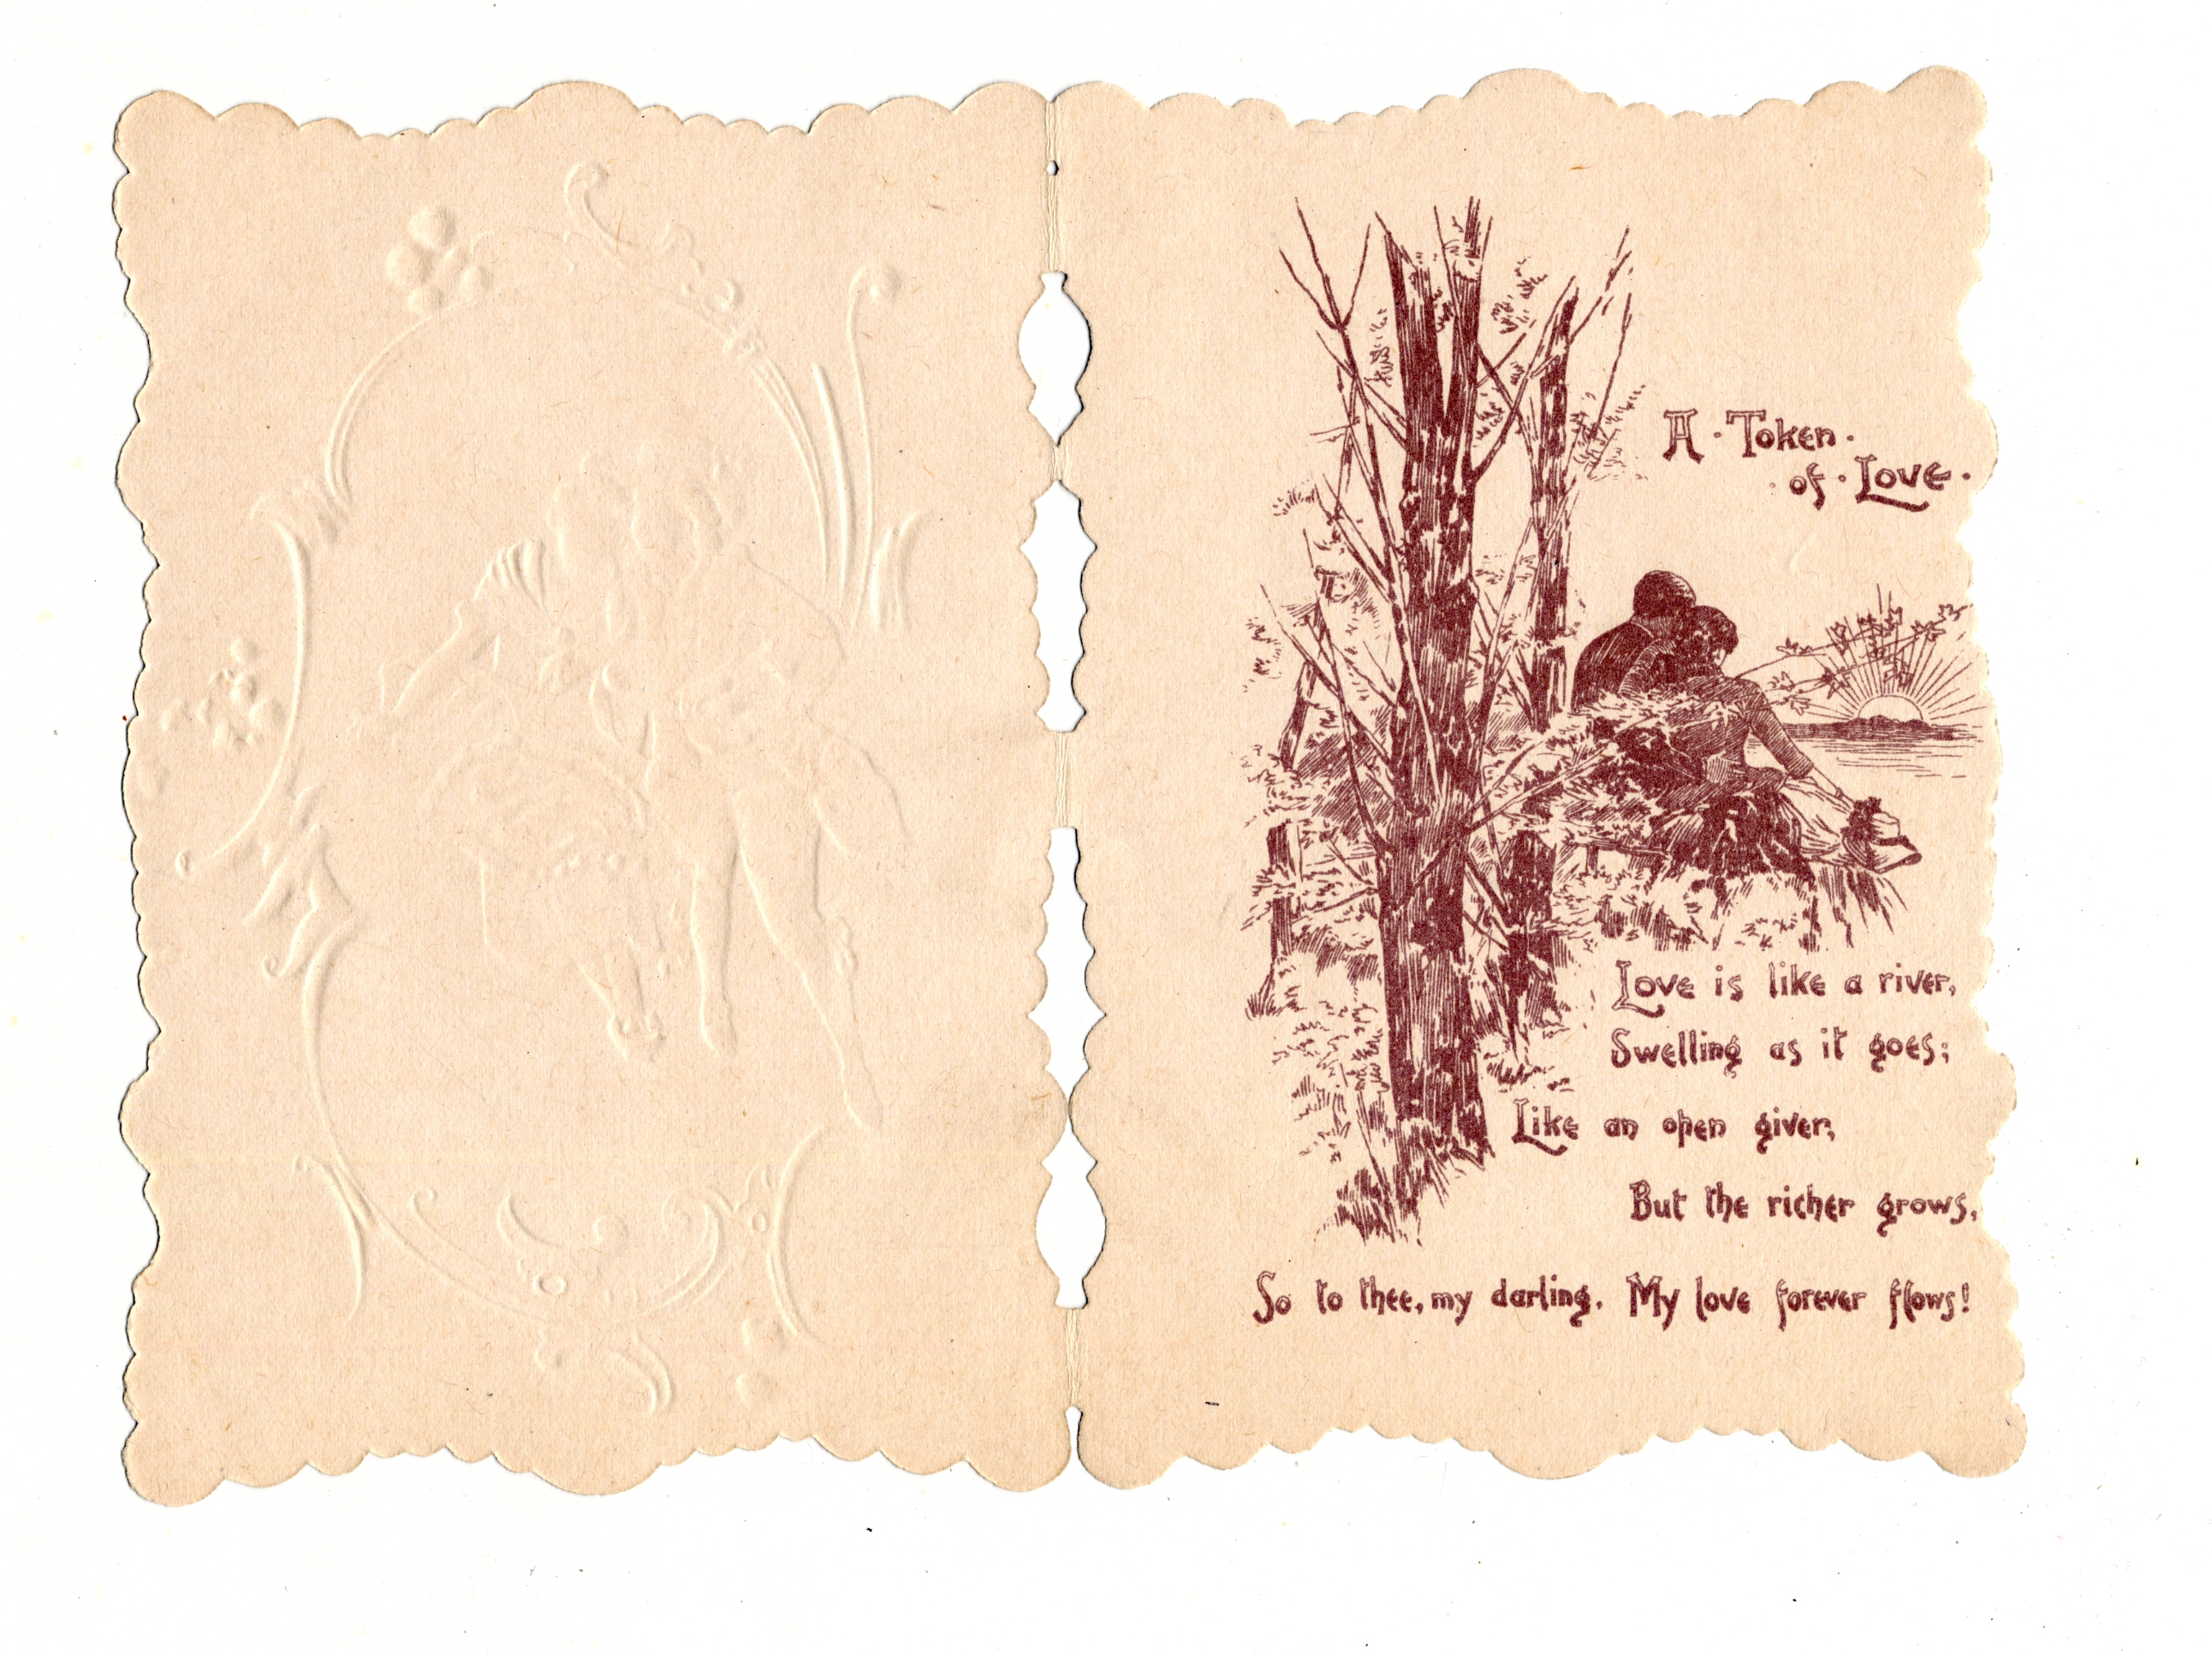 A · Token ·
· of · Love ·
Love is like a river,
Swelling as it goes;
Like an open giver,
But the richer grows,
So to thee, my darling. My love forever flows!